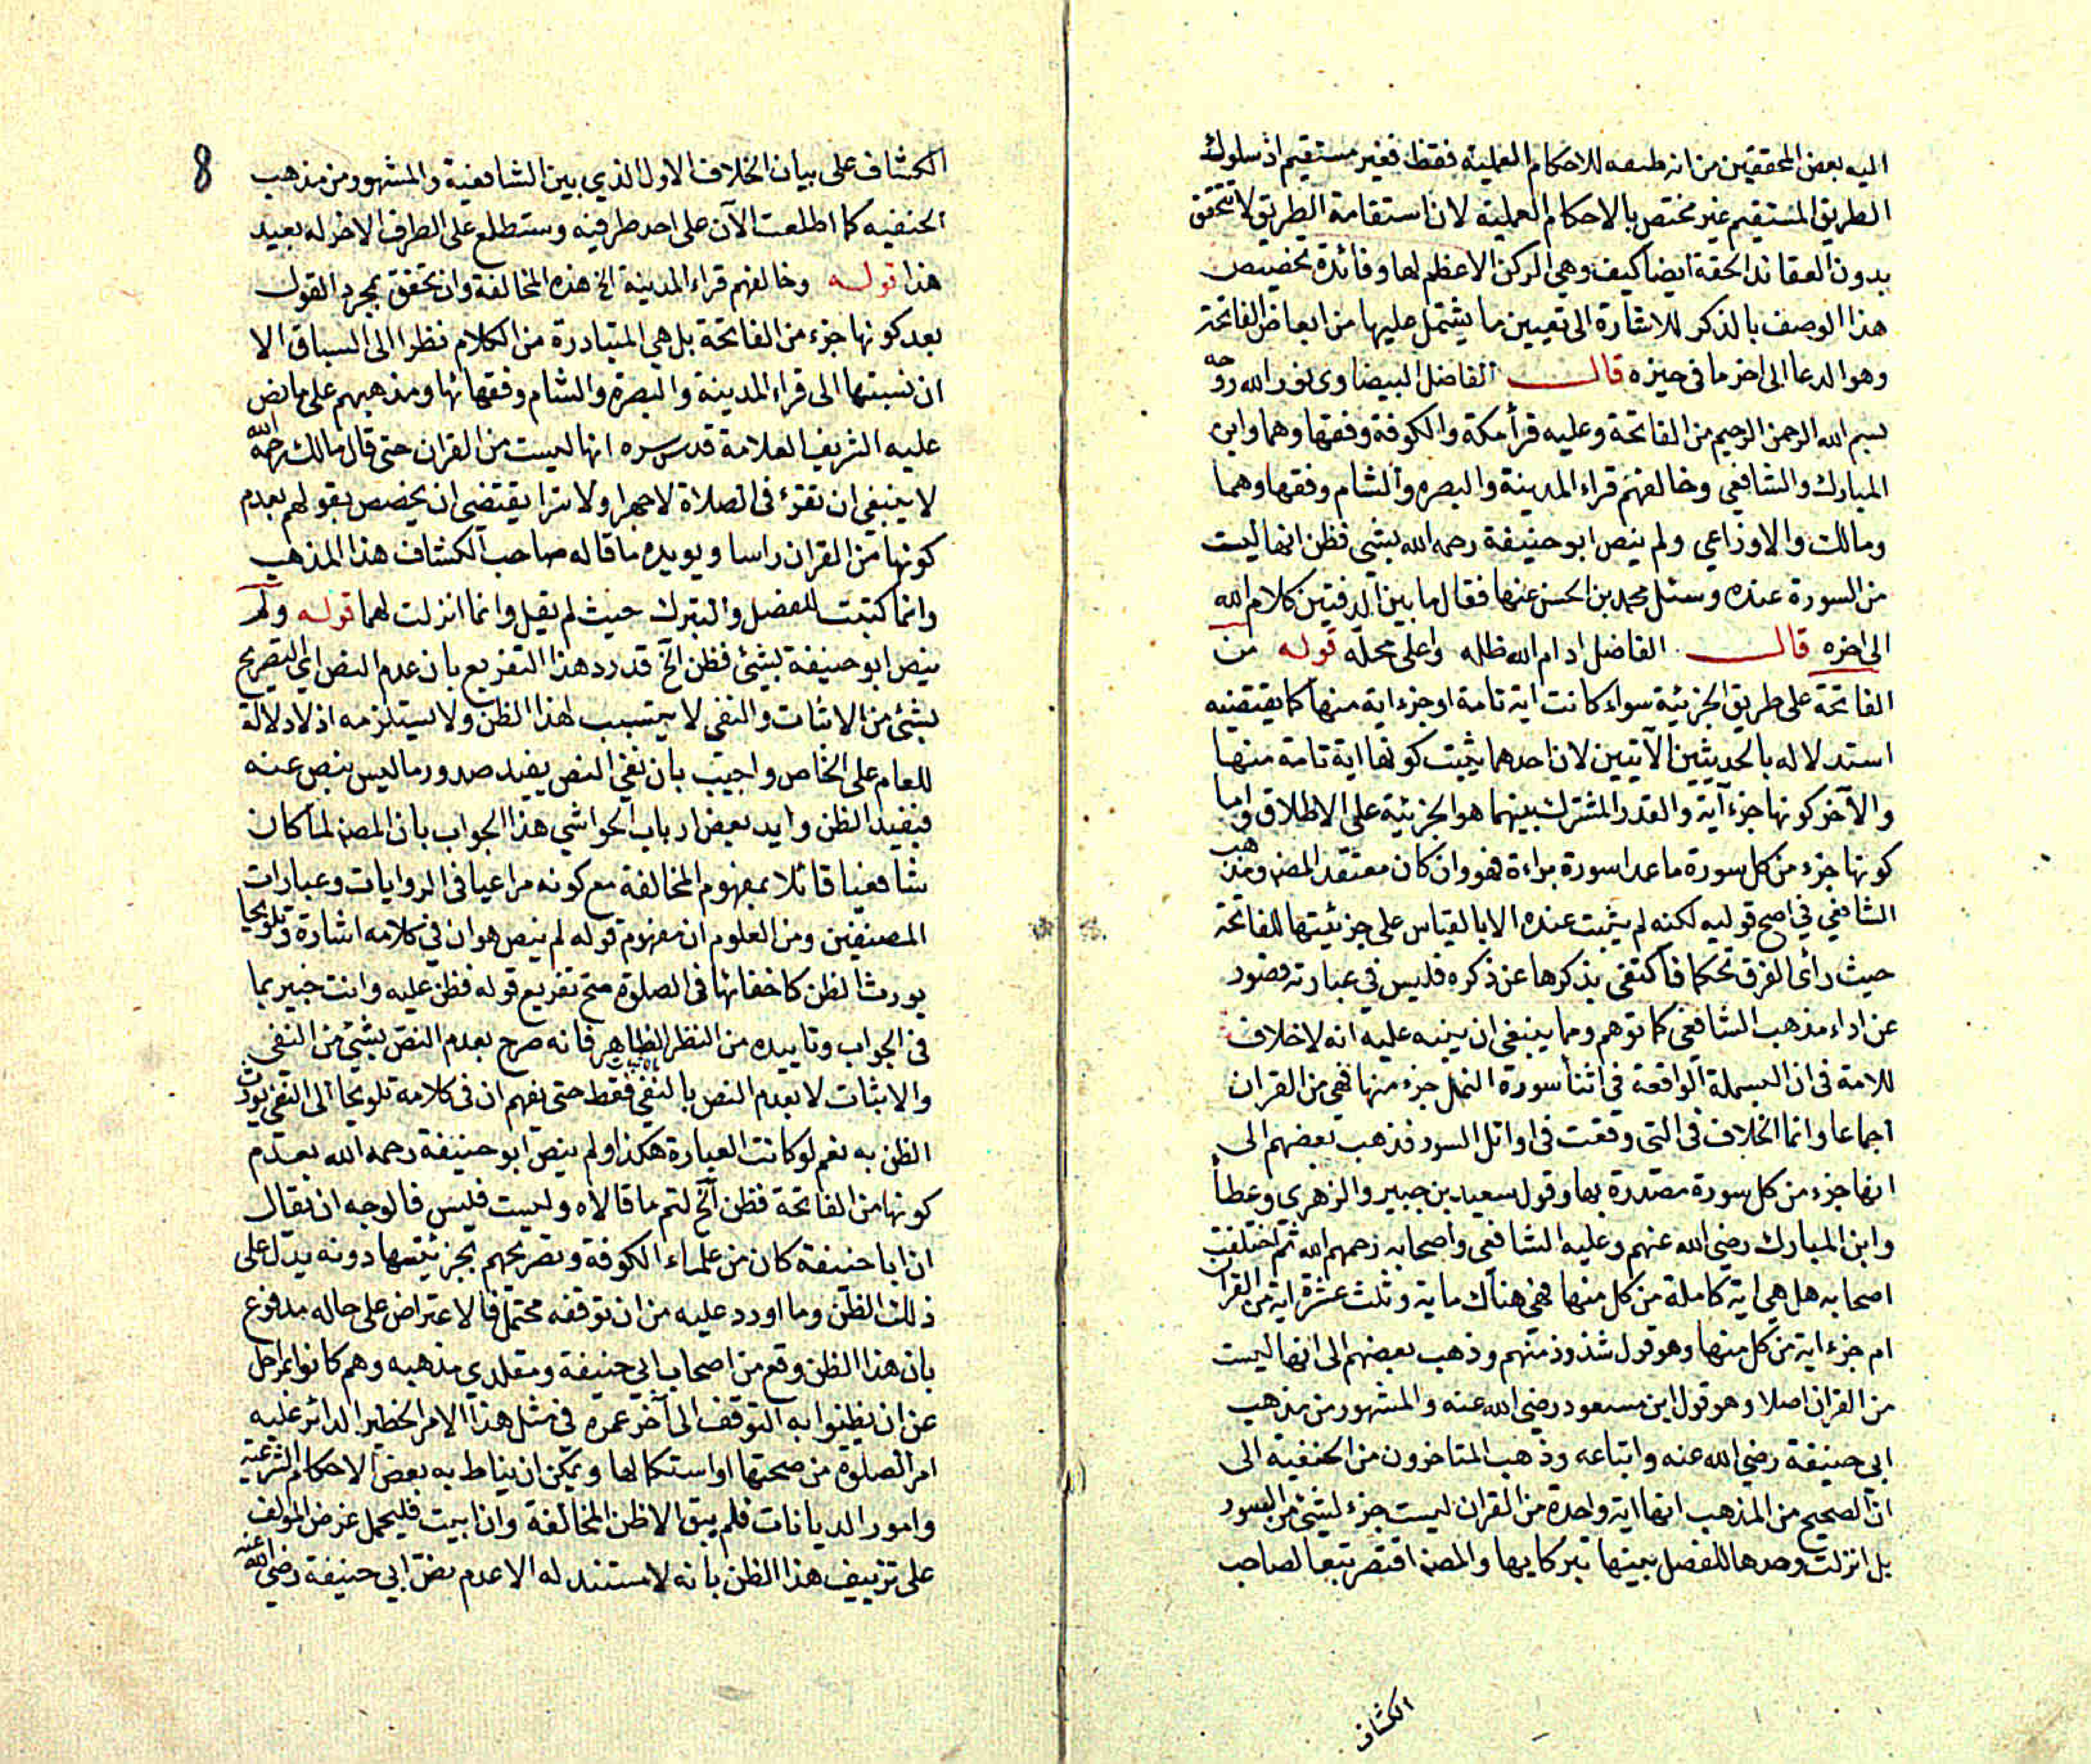 اليه بعض المحققين من انه صفة للاحكام العملية فقط فغير مستقيم اذ سلوك
الطريق المستقيم غير مختص بالاحكام العملية لان استقامة الطريق لا تتحقق
بدون العقائد الحقة ايضا كيف وهي الركن الاعظم لها وفائدة تخصيص
هذا الوصف بالذكر للاشارة الى تعيين ما يشتمل عليها من ابعاض الفاتحة
وهو الدعا الى اخر ما في حيزه قال الفاضل البيضاوى نور الله روحه
بسم الله الرحمن الرحيم من الفاتحة وعليه قرأ مكة والكوفة وفقهاوهما وابن
المبارك والشافعي وخالفهم قراء المدينة والبصره والشام وفقهاوهما
ومالك والاوزاعي ولم ينص ابو حنيفة رحمه الله بشي فظن انها ليست
من السورة عنده وسئل محمد بن الحسن عنها فقال ما بين الدفتين كلام الله
الى اخره قال الفاضل ادام الله ظله واعلى محله قوله من
الفاتحة على طريق الجزئية سواء كانت اية تامة او جزء اية منها كما يقتضيه
استدلاله بالحديثين الآتيين لان احدهما يثبت كونها اية تامة منها
والآخر كونها جزء آية والقدر المشترك بينهما هو الجزئية على الاطلاق واما
كونها جزء من كل سورة ما عدا سورة براءة فهو وان كان معتقد المصنف ومذهب
الشافعي في اصح قوليه لكنه لم يثبت عنده الا بالقياس على جزئيتها للفاتحة
حيث رأى الفرق تحكما فاكتفى بذكرها عن ذكره فليس في عبارته قصور
عن اداء مذهب الشافعي كما توهم ومما ينبغي ان ينبه عليه انه لا خلاف
للامة في ان البسملة الواقعة في اثنأ سورة النمل جزء منها فهي من القران
اجماعا وانما الخلاف في التي وقعت في اوائل السور فذهب بعضهم الى
انها جزء من كل سورة مصدرة بها وقول سعيد بن جبير والزهرى وعطأ
وابن المبارك رضي الله عنهم وعليه الشافعي واصحابه رحمهم الله ثم اختلفت
اصحابه هل هي اية كاملة من كل منها فهي هناك ماية وثلث عشرة اية من القران
ام جزء اية من كل منها وهو قول شذوذ منهم وذهب بعضهم الى انها ليست
من القران اصلا وهو قول ابن مسعود رضي الله عنه والمشهور من مذهب
ابي حنيفة رضي الله عنه واتباعه وذهب المتاخرون من الحنفية الى
ان الصحيح من المذهب انها اية واحدة من القران ليست جزء لشئ من السور
بل انزلت وحدها للفصل بينها تبركا بها والمصنف اقتصر تبعا لصاحب
الكشاف
8
الكشاف على بيان الخلاف الاول الذي بين الشافعية والمشهور من مذهب
الحنفيه كما اطلعت الآن على احد طرفيه وستطلع على الطرف الاخر له بعيد
هذا قوله وخالفهم قراء المدينة الخ هذه المخالفة وان تحقق بمجرد القول
بعد كونها جزء من الفاتحة بل هي المتبادرة من الكلام نظرا الى السباق الا
ان نسبتها الى قراء المدينة والبصره والشام وفقهائها ومذهبهم على ما نص
عليه الشريف العلامة قدس سره انها ليست من القران حتى قال مالك رحمه الله
لا ينبغي ان تقرء في الصلاة لا جهرا ولا سرا يقتضى ان يخصص بقولهم بعدم
كونها من القران راسا ويويده ما قاله صاحب الكشاف هذا المذهب
وانما كتبت للفصل والتبرك حيث لم يقل وانما انزلت لهما قوله ولم
ينص ابو حنيفة بشئ فظن الخ قد رد هذا التفريع بان عدم النص اي التصريح
بشئ من الاثبات والنفى لا يتسبب لهذا الظن ولا يستلزمه اذ لا دلالة
للعام على الخاص واجيب بان نفي النص يفيد صدور ما ليس بنص عنه
فيفيد الظن وايد بعض ارباب الحواشي هذا الجواب بان المصنف لما كان
شافعيا قائلا بمفهوم المخالفة مع كونه مراعيا في الروايات وعبارات
المصنفين ومن المعلوم ان مفهوم قوله لم ينص هو ان في كلامه اشارة وتلويحا
يورث الظن كاخفائها في الصلوة صح تفريع قوله فظن عليه وانت خبير بما
في الجواب وتاييده من النظر الظاهر فانه صرح بعدم النص بشئ من النفى
والاثبات لا بعدم النص بالنفي فقط حتى يفهم ان في كلامه تلويحا الى النفي يورث
الظن به نعم لو كانت العبارة هكذا ولم ينص ابو حنيفة رحمه الله بعدم
كونها من الفاتحة فظن الخ لتم ما قالاه وليست فليس فالوجه ان يقال
ان ابا حنيفة كان من علماء الكوفة وتصريحهم بجزئيتها دونه يدل على
ذلك الظن وما اورد عليه من ان توقفه محتمل فالاعتراض على حاله مدفوع
بان هذا الظن وقع من اصحاب ابي حنيفة ومقلدي مذهبه وهم كانوا بمراحل
عن ان يظنوا به التوقف الى آخر عمره في مثل هذا الامر الخطير الدائر عليه
امر الصلوة من صحتها او استكمالها ويمكن ان يناط به بعض الاحكام الشرعية
وامور الديانات فلم يبق الا ظن المخالفة وان ابيت فليحمل غرض المؤلف
على تزييف هذا الظن بانه لا مستند له الا عدم نص ابي حنيفة رضي الله عنه